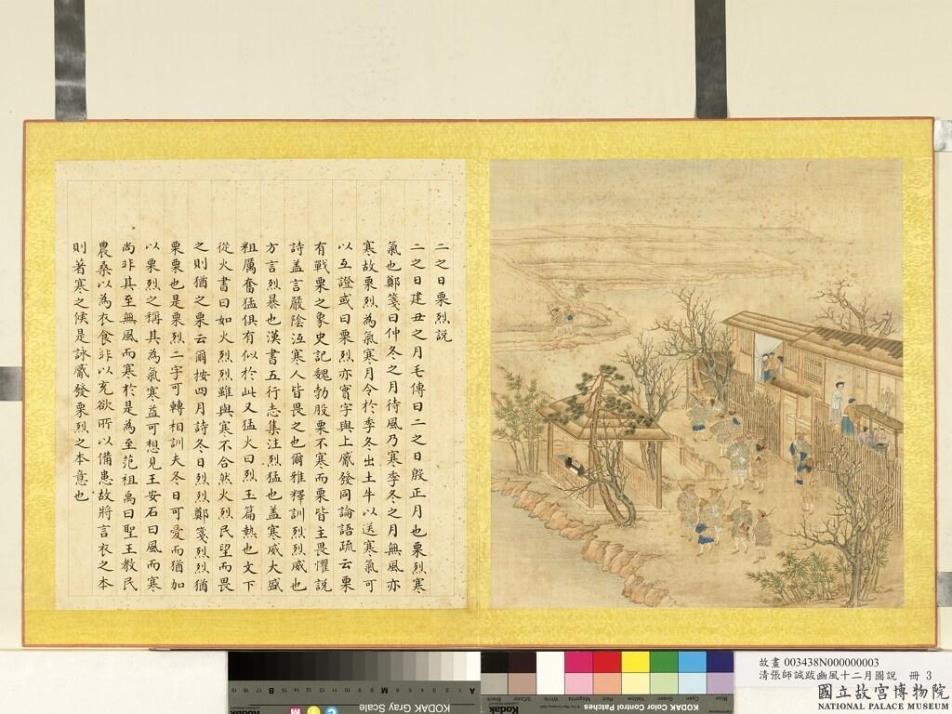 二之日栗烈說
二之日建丑之月毛傳曰二之日殷正月也栗烈寒
氣也鄭箋曰仲冬之月待風乃寒季冬之月無風亦
寒故栗烈為氣寒月令於季冬出土牛以送寒氣可
以互證或曰栗烈亦實字與上觱發同論語疏云栗
有戰栗之象史記魏勃股栗不寒而栗皆主畏懼說
詩蓋言嚴陰沍寒人皆畏之也爾雅釋訓烈烈威也
方言烈暴也漢書五行志集注烈猛也蓋寒威大盛
粗厲奮猛俱有似於此又猛火曰烈玉篇熱也文下
從火書曰如火烈烈雖與寒不合然火烈民望而畏
之則猶之栗云爾按四月詩冬日烈烈鄭箋烈烈猶
栗栗也是栗烈二字可轉相訓夫冬日可愛而猶加
以栗烈之稱其為氣寒益可想見王安石曰風而寒
尚非其至無風而寒於是為至范祖禹曰聖王教民
農桑以為衣食非以充欲所以備患故將言衣之本
則著寒之候是詠觱發栗烈之本意也
故畫 003438N000000003
清張師誠跋豳風十二月圖說 冊 3
國立故宮博物院
NATIONAL PALACE MUSEUM
Kodak
KODAK Gray Scale
B
M
A
KODAK Color Control Patches
Black
White
Magenta
Red
Yellow
Green
Cyan
Blue